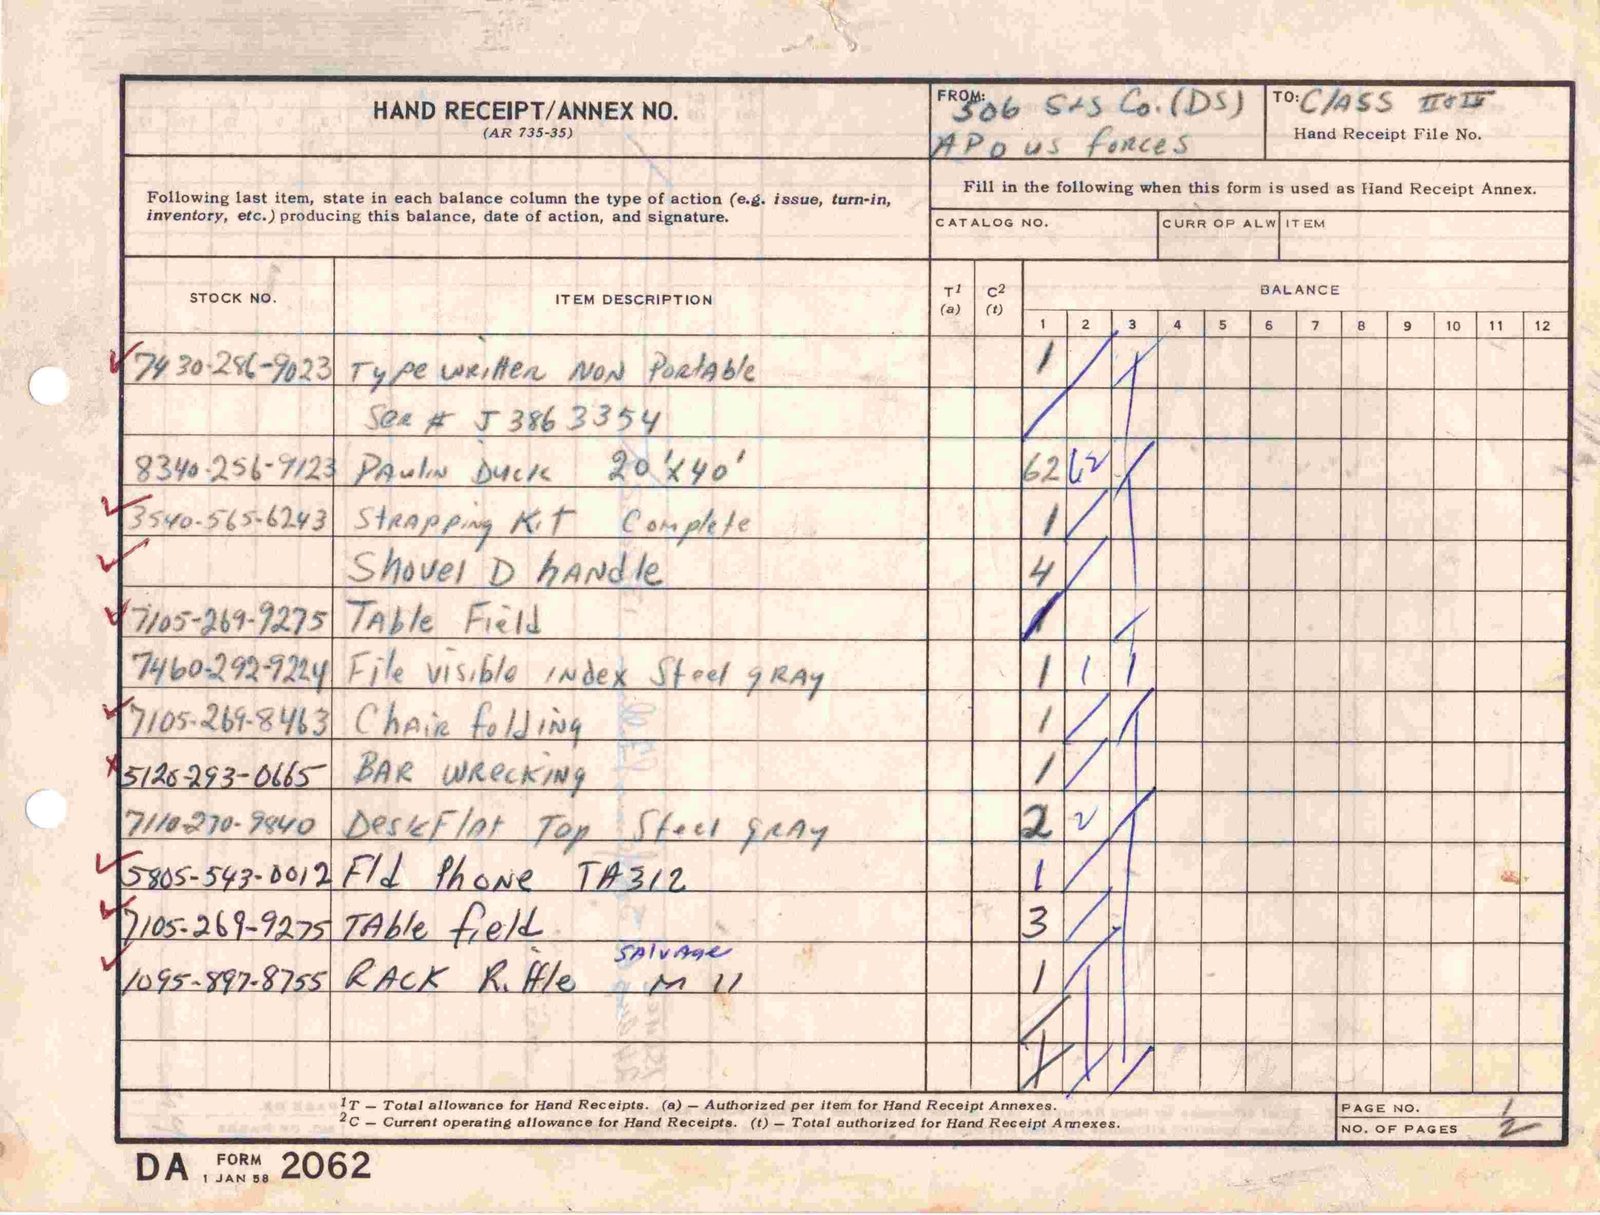 HAND RECEIPT/ANNEX NO.
(AR 735-35)
FROM: 506 S+S Co. (DS)
APO US forces
TO: CLASS II & IV
Hand Receipt File No.
Following last item, state in each balance column the type of action (e.g. issue, turn-in,
inventory, etc.) producing this balance, date of action, and signature.
Fill in the following when this form is used as Hand Receipt Annex.
CATALOG NO. CURR OP ALW ITEM
STOCK NO. ITEM DESCRIPTION T1 (a) C2 (t) BALANCE
1 2 3 4 5 6 7 8 9 10 11 12
7430-286-9023 Type writter NON PORtAble 1
Ser # J3863354
8340-256-9123 PAulin Duck 20'x40' 62 62
3540-565-6243 STRAPPing KiT Complete 1
Shovel D hANdle 4
7105-269-9275 TAble Field 1
7460-292-9224 File visible iNdex Steel gRAy 1 1 1
7105-269-8463 ChAiR foldiNg 1
5120-293-0665 BAR WReckiNg 1
7110-270-9840 Desk Flat Top Steel gRAy 2 2
5805-543-0012 Fld PhoNe TA312 1
7105-269-9275 TAble field 3
SAlvAge
1095-897-8755 RACK Riffle M 11 1
1T — Total allowance for Hand Receipts. (a) — Authorized per item for Hand Receipt Annexes.
2C — Current operating allowance for Hand Receipts. (t) — Total authorized for Hand Receipt Annexes.
PAGE NO. 1
NO. OF PAGES 2
DA FORM 1 JAN 58 2062